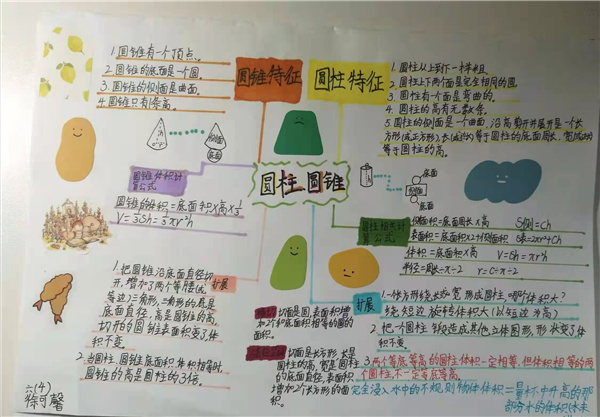 圆锥特征
1.圆锥有一个顶点。
2.圆锥的底面是一个圆。
3.圆锥的侧面是曲面。
4.圆锥只有1条高。
侧面
底面
圆柱特征
1.圆柱从上到下一样粗。
2.圆柱上下两个面是完全相同的圆。
3.圆柱有一个面是弯曲的。
4.圆柱的高有无数条。
5.圆柱的侧面是一个曲面,沿高剪开并展开是一个长
方形(或正方形),长(或边)等于圆柱的底面周长,宽
等于圆柱的高。
圆柱 圆锥
圆锥体积计
算公式
圆锥的体积=底面积×高×1/3
V=1/3Sh=1/3πr²h
底面
侧面
底面
圆柱相关计
算公式
侧面积=底面周长×高 S侧=Ch
表面积=底面积×2+侧面积 S表=2πr²+Ch
体积=底面积×高 V=Sh=πr²h
半径=周长÷π÷2 r=C÷π÷2
扩展
1.把圆锥沿底面直径切
开,增加了两个等腰(或
等边)三角形,三角形的底是
底面直径,高是圆锥的高,
切开的圆锥表面积变了,体
积不变。
2.当圆柱、圆锥底面积、体积相等时,
圆锥的高是圆柱的3倍。
切面是圆,表面积增
加2个和底面积相等的圆的面
积。
切面是长方形,长是
圆柱的高,宽是圆柱
的底面直径,表面积
增加2个长方形的面
积。
扩展
1.一个长方形绕长或宽形成圆柱,哪个体积大?
绕短边旋转体积大(以短边为高)
2.把一个圆柱钢锻造成其他立体图形,形状变了体
积不变。
3.两个等底等高的圆柱体积一定相等,但体积相等的两
个圆柱不一定等底等高。
完全浸入水中的不规则物体体积=量杯中升高的那
部分水的体积
六(4)
徐可馨